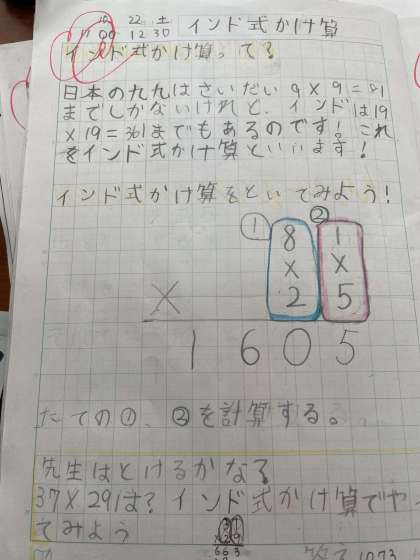 10 22 土 インド式かけ算
11 00 12 30
インド式かけ算って?
日本の九九はさいだい9×9=81
までしかないけれど、インドは19
×19=361までもあるのです!これ
をインド式かけ算といいます!
インド式かけ算をといてみよう!
① ②
8 1
× ×
2 5
×
1 6 0 5
たての①、②を計算する。
先生はとけるかな?
37×29は?インド式かけ算でやっ
てみよう
答え1073